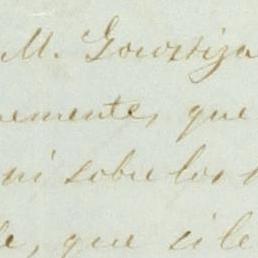 M. Gorostiza
nemente, que
ni sobre los
que si le